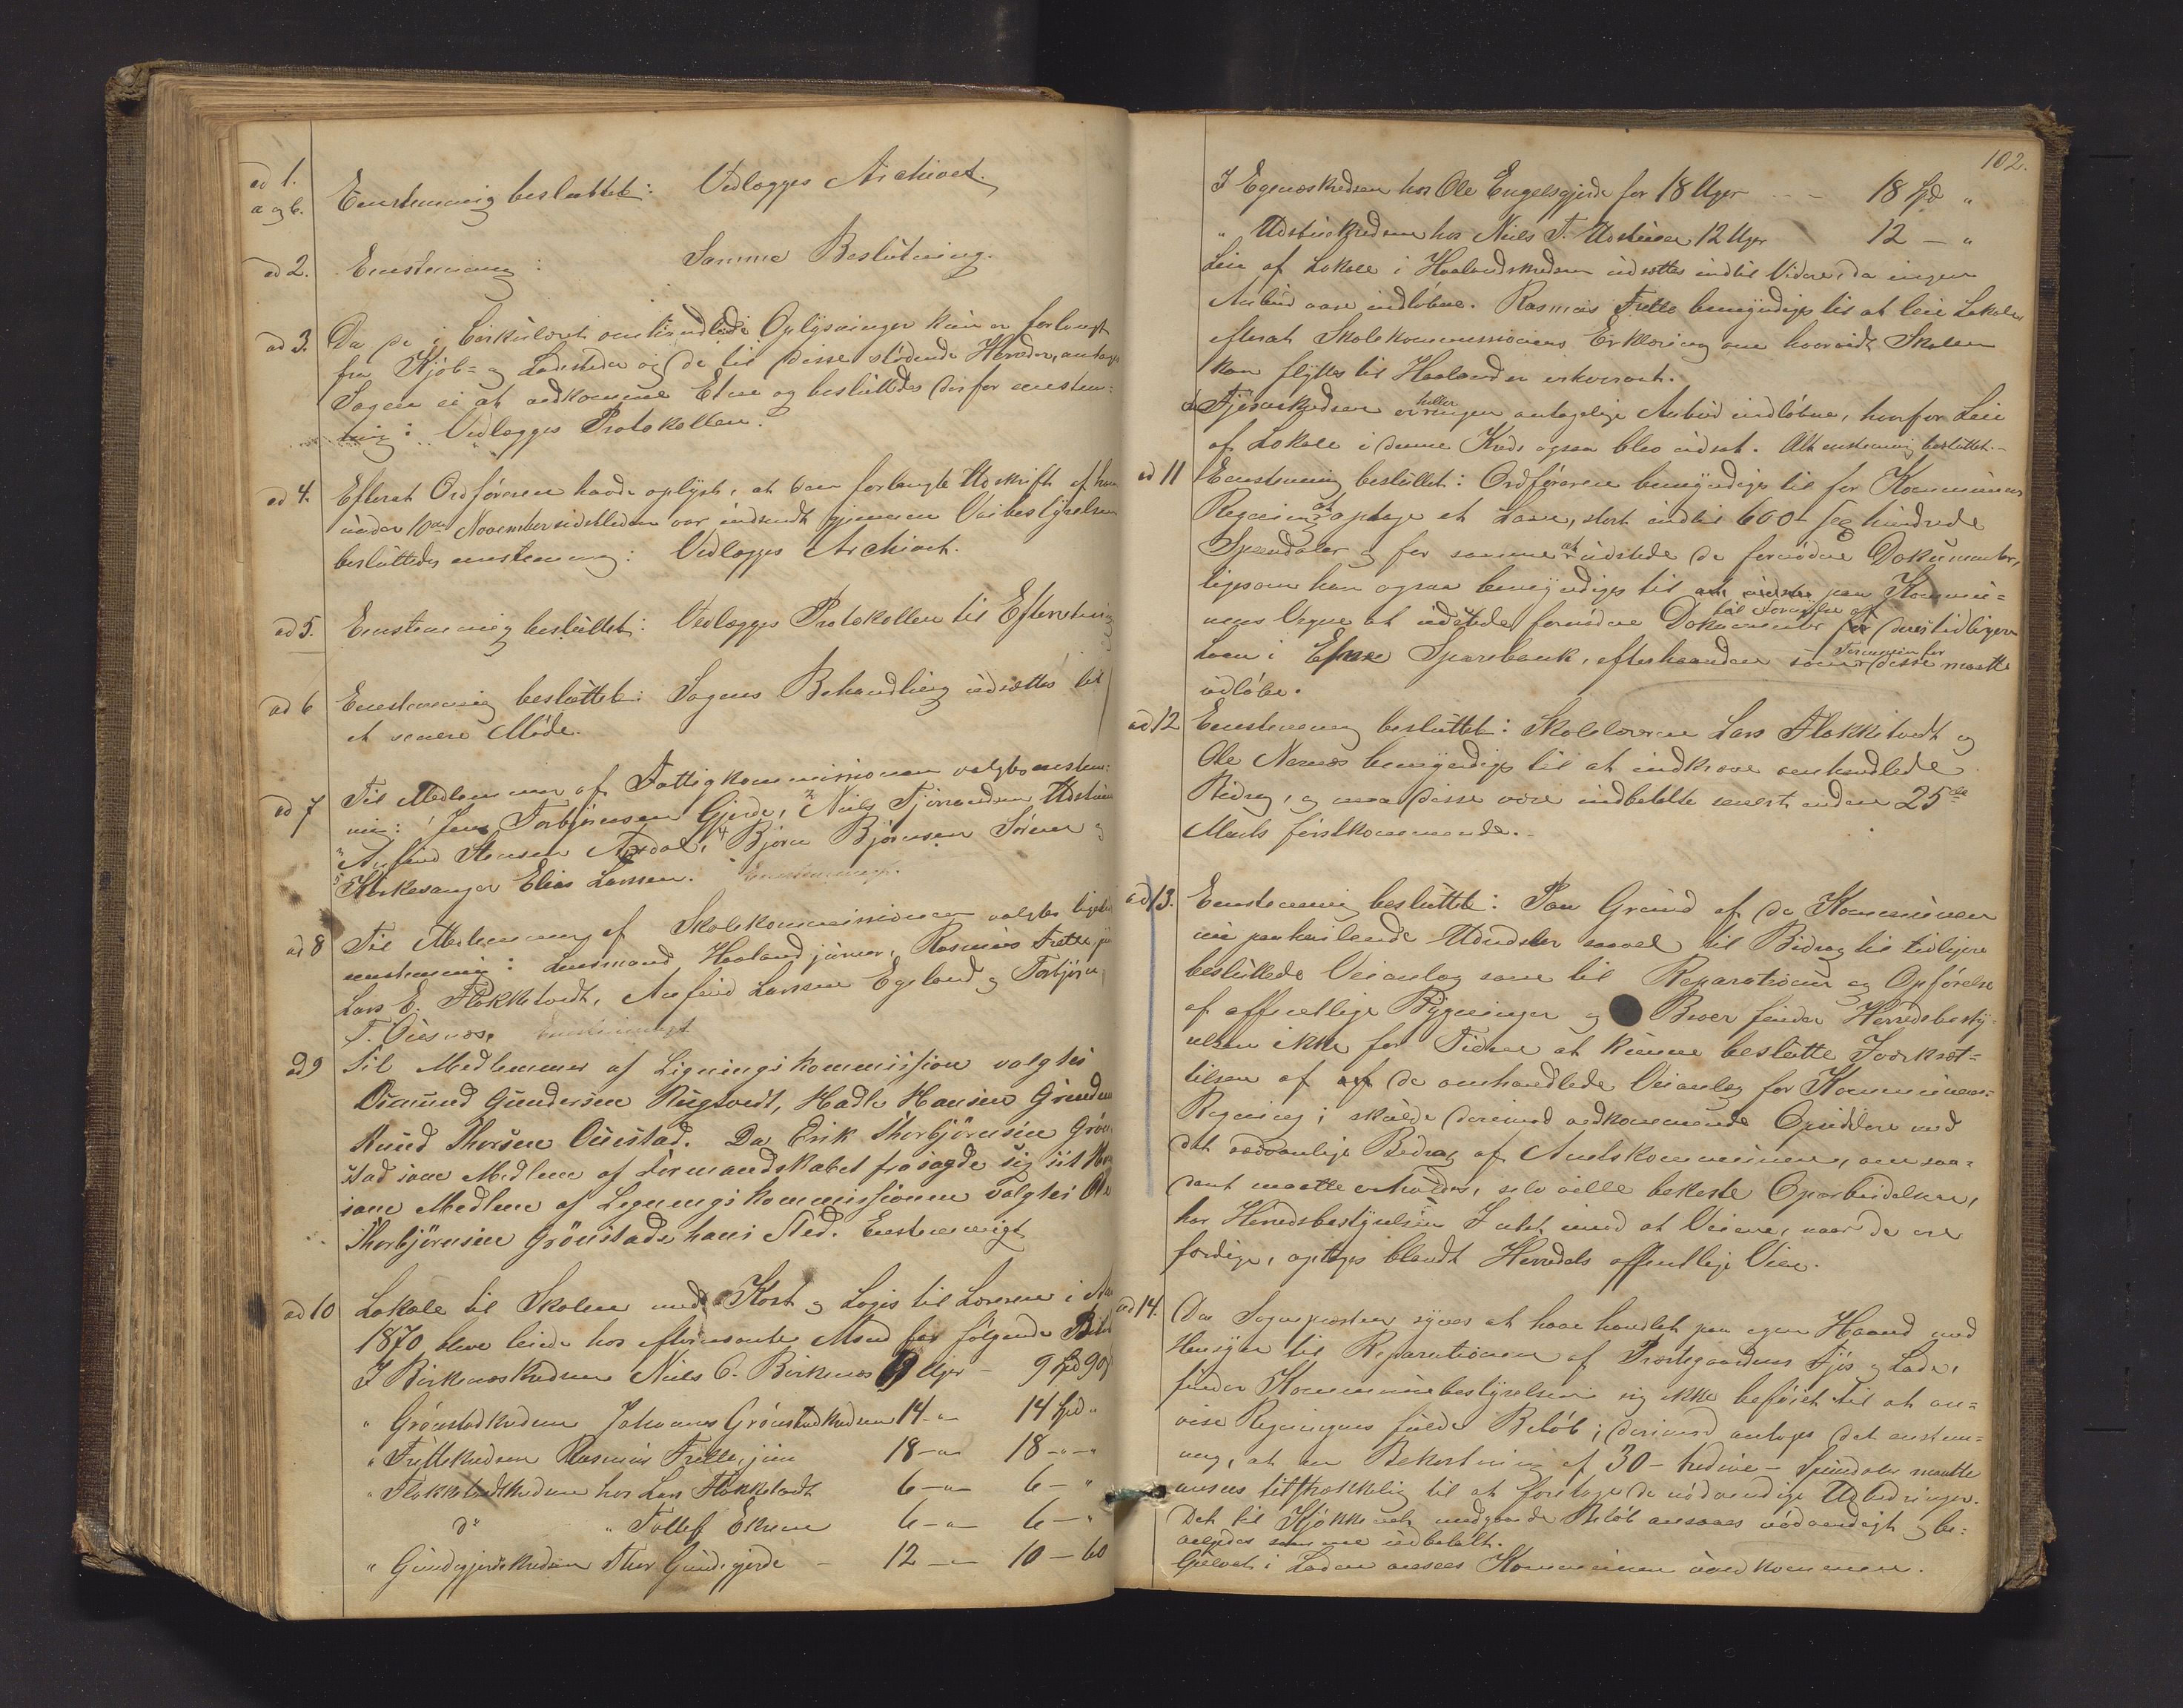 ad 1.
a og b. Eenstemmig besluttet: Vedlægges Archivet.
ad 2. Eenstemmig: Samme Beslutning.
ad 3. Da de i Cirkulæret omhandlede Oplysninger kun er forlangt
fra Kjøb- og Ladesteder og de til disse stødende Herreder, antages
Sagen ei at vedkomme Etne og besluttedes derfor enstem-
mig: Vedlægges Protokollen.
ad 4. Efterat Ordføreren havde oplyst, at den forlangte Udskrift af
under 10de November sidstleden var indsendt gjennem Veibestyrelsen
besluttedes enstemmig: Vedlægges Archivet.
ad 5. Eenstemmig besluttet: Vedlægges Protokollen til Efterretning
ad 6 Eenstemmig besluttet: Sagens Behandling udsættes til
et senere Møde.
ad 7 Til Medlemmer af Fattigkommissionen valgtes enstem-
mig: 1 Jens Torbjørnsen Gjerde, 2 Niels Fjøsnedsen
3 Anfind Hansen 4 Bjørn Bjørnsen Sørnes og
5 Kirkesanger Elias Larsen. Eenstemmigt.
ad 8 Til Medlemmer af Skolekommissionen valgtes ligeledes
enstemmig: Lensmand Haaland junior, Rasmus Frette jun
Lars E. Flokketvedt, Anfind Larsen Egeland og Torbjørn
T. Øiesnæs. Eenstemmigt
ad 9 Til Medlemmer af Ligningskommission valgtes
Osmund Gundersen Rygtvedt, Hadle Hansen Grinde
Knud Thorsen Ønestad. Da Erik Thorbjørnsen Grøn-
stad som Medlem af Formandskabet frasagde sig sit
som Medlem af Ligningskommissionen valgtes Ole
Thorbjørnsen Grønstad i hans Sted. Eenstemmigt
ad 10 Lokale til Skolen med Kost og Logis til Læreren i Aaret
1870 bleve leiede hos efternævnte Mænd for følgende
I Birkenæskredsen Niels O. Birkenæs 9 Uger - 9 Spd 90
" Grønstadkredsen Johannes Grønstadkredsen 14 - " 14 Spd "
" Frettekredsen Rasmus Frette, jun 18 - " 18 - "
" Flokketvedtkredsen hos Lars Flokketvedt 6 - " 6 - "
do " Tollef Ekrene 6 - " 6 - "
" Gundegjerdekredsen Thor Gundegjerde - 12 - " 10 - 60
102.
I Egenæskredsen hos Ole Engelsgjerde for 18 Uger - - 18 Spd "
" Udstuekredsen hos Niels T. Udstuen 12 Uger 12 - "
Leie af Lokale i Haalandskredsen udsættes indtil Videre, da ingen
Anbud vare indløbne. Rasmus Frette bemyndiges til at leie Lokale
efterat Skolekommissionens Erklæring om hvorvidt Skolen
kan flyttes til Haaland er erhvervet.
I Fjøsnekredsen var heller ingen antagelige Anbud indløbne, hvorfor Leie
af Lokale i denne Kreds ogsaa blev udsat. Alt enstemmig besluttet.
ad 11 Eenstemmig besluttet: Ordføreren bemyndiges til for Kommunens
Regning at optage et Laan, stort indtil 600 - sex hundrede
Speciedaler og for samme at udstede de fornødne Dokumenter,
ligesom han ogsaa bemyndiges til paa Kommu-
nens Vegne at udstede fornødne Dokumenter til Fornyelse af dens tidligere
Laan i Etne Sparebank, efterhaanden som Terminen for disse maatte
udløbe.
ad 12 Eenstemmig besluttet: Skolelærerne Lars Flokketvedt og
Ole Nernæs bemyndiges til at indkræve omhandlede
Bidrag, og maa disse være indbetalte senest inden 25de
Marts førstkommende.
ad 13. Eenstemmig besluttet: Paa Grund af de Kommunen
nu paahvilende Udredsler saavel til Bidrag til tidligere
besluttede Veianlæg som til Reparationer og Opførelse
af offentlige Bygninger og Broer finder Herredsbesty-
relsen ikke for Tiden at kunne beslutte Iværksæt-
telsen af de omhandlede Veianlæg for Kommunens
Regning; skulde derimod vedkommende Opsiddere med
det sædvanlige Bidrag af Amtskommunen, om saa-
dant maatte erholdes, selv ville bekoste Oparbeidelsen,
har Herredsbestyrelsen Intet imod at Veiene, naar de ere
færdige, optages blandt Herredets offentlige Veie.
ad 14. Da Sognepresten synes at have handlet paa egen Haand med
Hensyn til Reparationen af Præstegaardens Fjøs og Lade,
finder Kommunebestyrelsen sig ikke beføiet til at an-
vise Regningens fulde Beløb; derimod antages det enstem-
mig, at en Bekostning af 30 - tredive - Speciedaler maatte
ansees tilstrækkelig til at foretage de nødvendige Udbedringer.
Det til Kjøkkenet medgaaede Beløb ansaaes nødvendigt og be-
vilgedes samme udbetalt.
Gulvet i Laden ansees Kommunen uvedkommen.